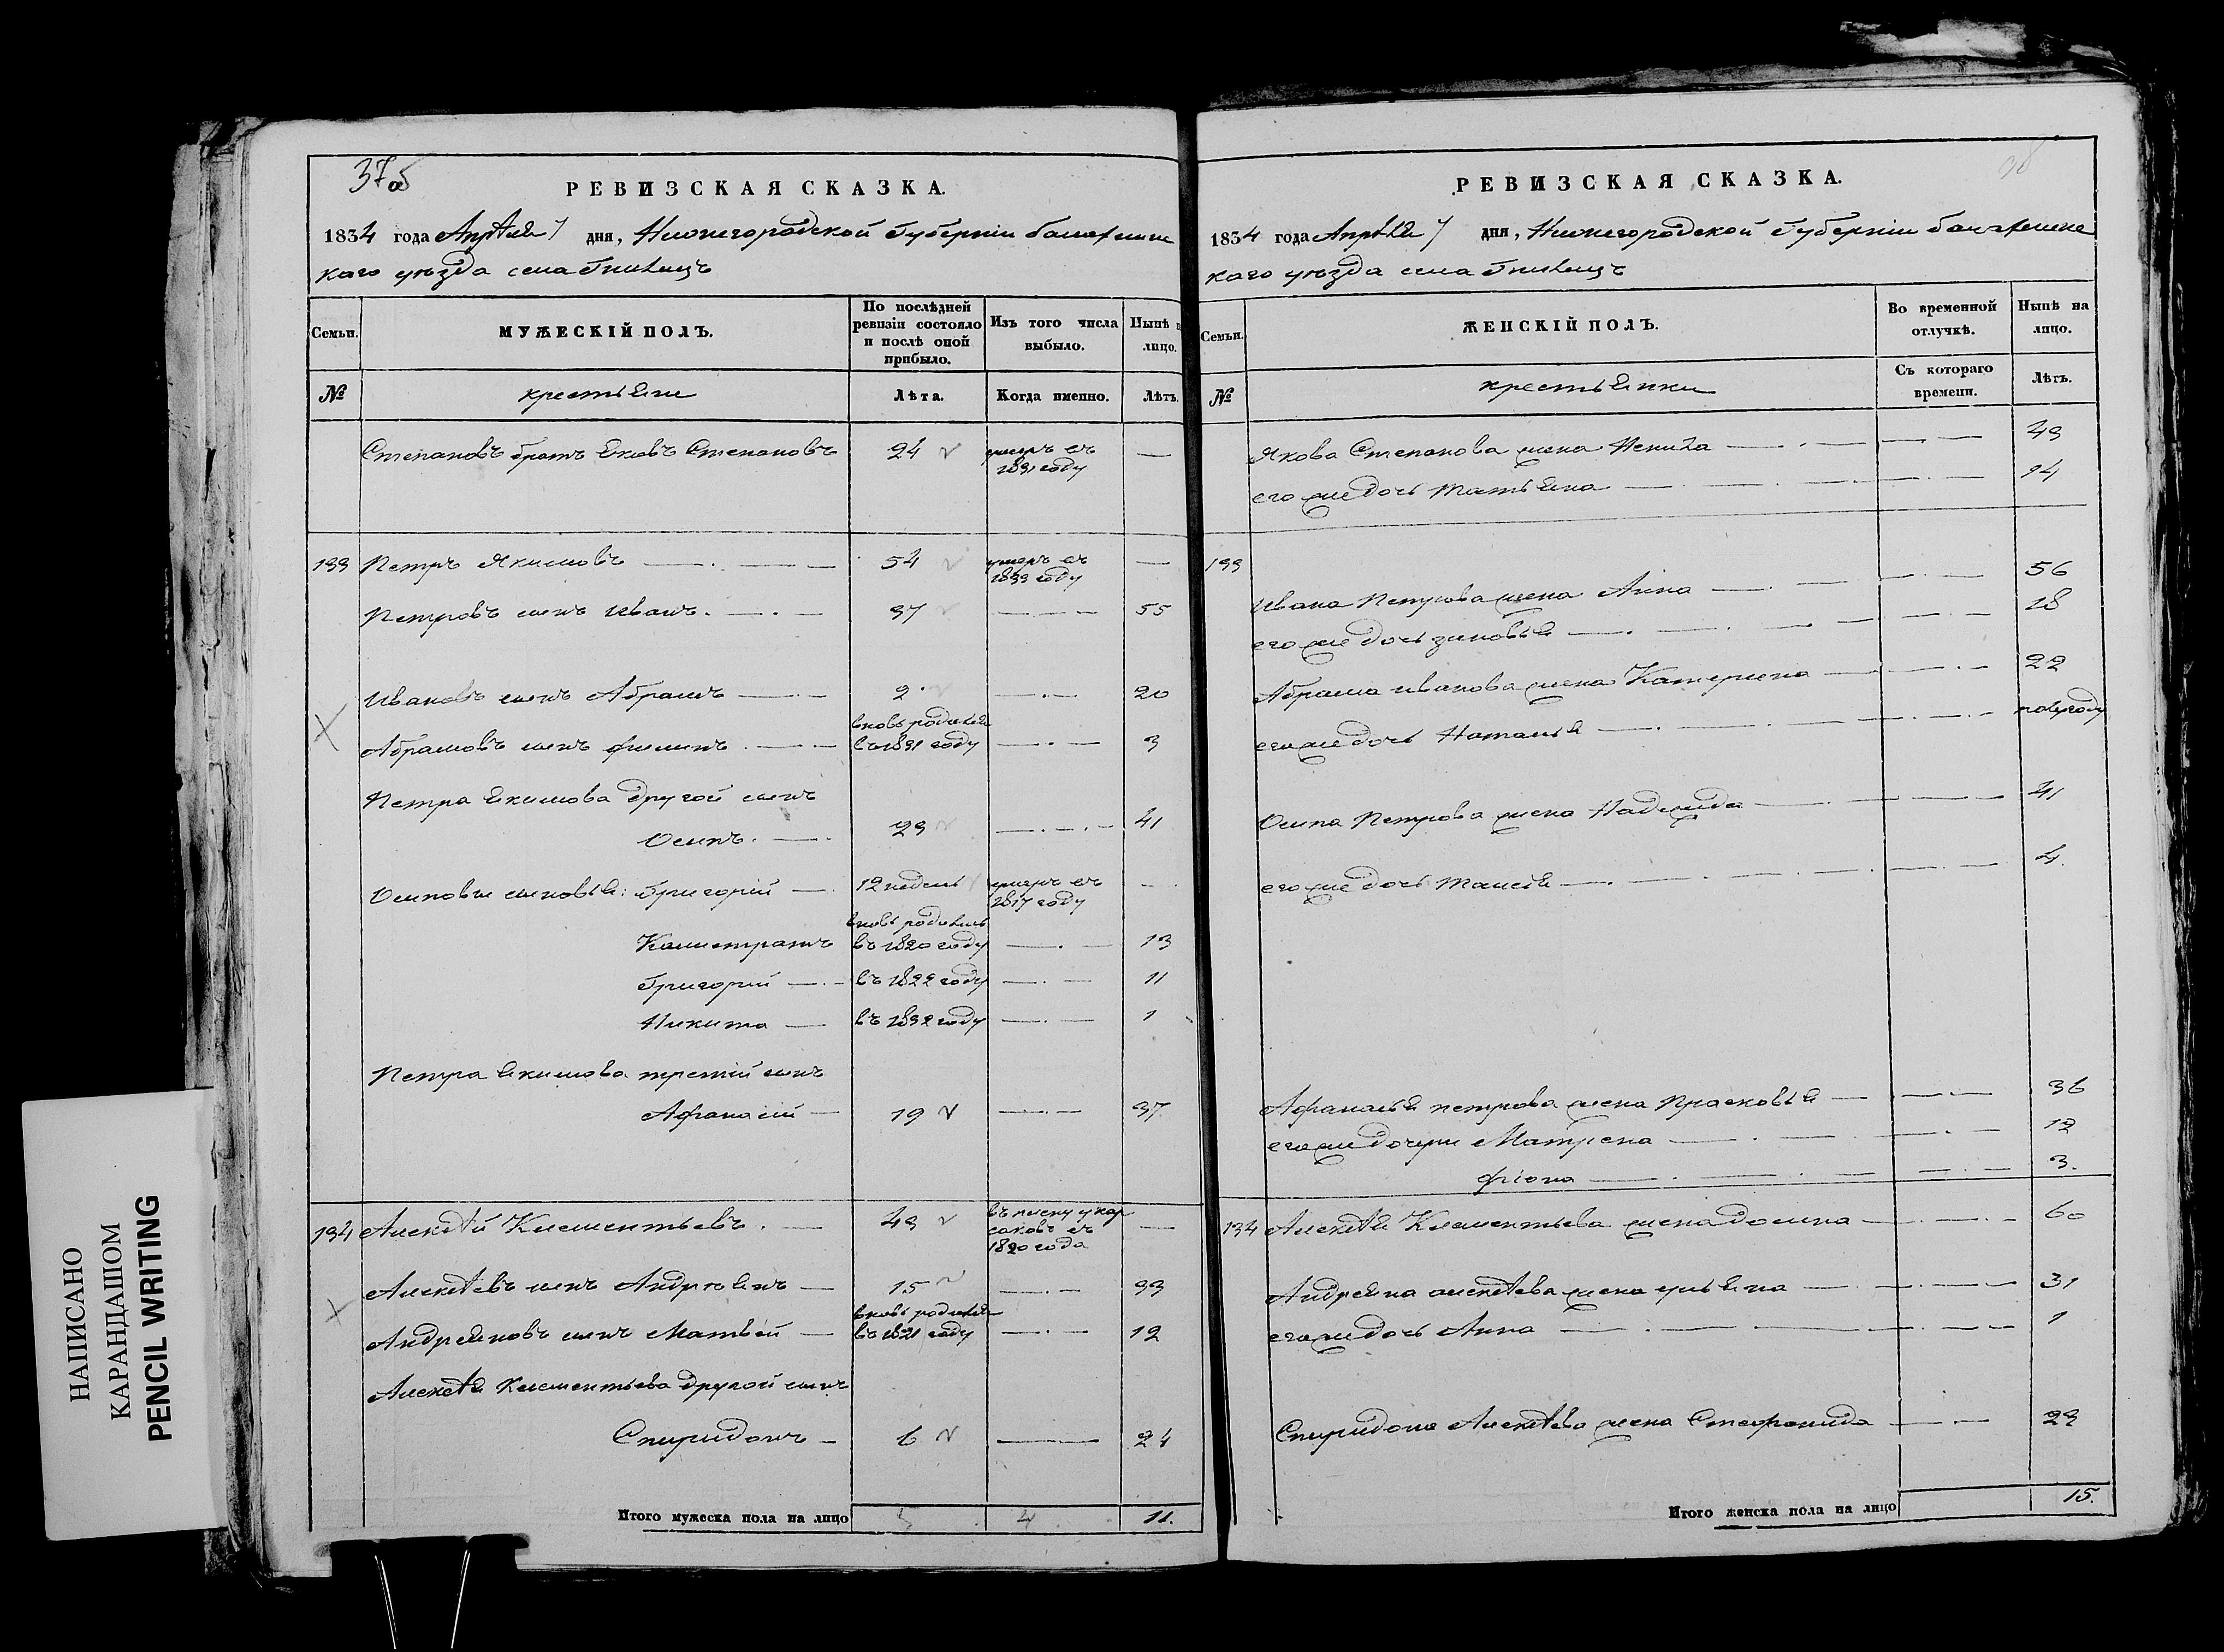 37об
РЕВИЗСКАЯ СКАЗКА.
1834 года Апрѣля 7 дня, Нижегородской Губерніи
каго уѣзда села Гнилицъ
Семьи.
МУЖЕСКІЙ ПОЛЪ.
По послѣдней ревизіи состояло и послѣ оной прибыло.
Изъ того числа выбыло.
Нынѣ лицо.
№
крестьяни
Лѣта.
Когда именно.
Лѣтъ.
Степановъ братъ Яковъ Степановъ 24 умеръ въ 1831 году —
133 Петръ Якимовъ 54 умеръ въ 1833 году —
Петровъ сынъ Иванъ 37 — 55
Ивановъ сынъ Абрамъ 2 — 20
вновь родился
Абрамовъ сынъ Филипъ въ 1831 году — 3
Петра Якимова другой сынъ
Осипъ 23 — 41
Осиповы сыновья: Григорій 12 недель умеръ въ 1817 году —
вновь родились
Калистратъ въ 1820 году — 13
Григорій въ 1822 году — 11
Никита въ 1832 году — 1
Петра Якимова третій сынъ
Афанасій 19 — 37
134 Алексѣй Клементьевъ 43 1820 года —
Алексѣевъ сынъ Андреянъ 15 — 33
вновь родился
Андреяновъ сынъ Матвей въ 1821 году — 12
Алексѣя Клементьева другой сынъ
Спиридонъ 6 — 24
Итого мужеска пола на лицо 5 4 11.
РЕВИЗСКАЯ СКАЗКА.
1834 года Апрѣля 7 дня, Нижегородской Губерніи
каго уѣзда села Гнилицъ
Семьи.
ЖЕНСКІЙ ПОЛЪ.
Во временной отлучкѣ.
Нынѣ на лицо.
№
крестьянки
Съ котораго времени.
Лѣтъ.
Якова Степанова жена Ненила — 43
его же дочь Татьяна — 14
133
Ивана Петрова жена Анна — 56
его же дочь Зиновья — 18
Абрама Иванова жена Катерина — 22
его же дочь Наталья — полугоду
Осипа Петрова жена Надежда — 41
его же дочь Таисья — 4.
Афанасья петрова жена Прасковья — 36
его же дочери Матрена — 12
Фіона — 3.
134 Алексѣя Клементьева жена Домна — 60
Андреяна алексѣева жена ульяна — 31
его же дочь Анна — 1
Спиридона Алексѣева жена Стефанида — 23
Итого женска пола на лицо 15.
НАПИСАНО
КАРАНДАШОМ
PENCIL WRITING